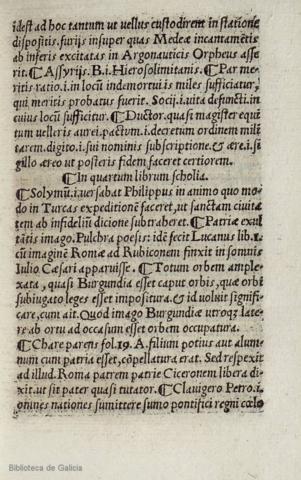 idest ad hoc tantum ut vellus custodirent in statione
dispositis. furijs insuper quas Medeæ incantamẽtis
ab inferis excitatas in Argonauticis Orpheus asse
rit. ¶ Assyrijs. B. i. Hierosolimitanis. ¶ Par me
ritis ratio. i. in locũ indemortui is miles sufficiatur,
qui meritis probatus fuerit. Socij. i. vita defuncti. in
cuius locũ sufficitur. ¶ Ductor. quasi magister equi
tum velleris aurei. pactum. i. decretum ordinem mili
tarem. digito. i. sui nominis subscriptione. & ære. i. si
gillo æreo ut posteris fidem faceret certiorem.
¶ In quartum librum scholia.
¶ Solymũ. i. versabat Philippus in animo quo mo
do in Turcas expeditionẽ faceret, ut sanctam civita
tem ab infideliũ dicione subtraheret. ¶ Patriæ exul
tãtis imago. Pulchra poesis: idẽ fecit Lucanus lib. 1.
cũ imaginẽ Romæ ad Rubiconem finxit in somnis
Iulio Cæsari apparuisse. ¶ Totum orbem ample
xata, quasi Burgundia esset caput orbis, quæ orbi
subiugato leges esset impositura. & id voluit signifi
care, cum ait. Quod imago Burgundiæ utroqz late
re ab ortu ad occasum esset orbem occupatura.
¶ Chare parens fol. 19. A. filium potius aut alum
num cum patria esset, cõpellatura erat. Sed respexit
ad illud. Roma patrem patriæ Ciceronem libera di
xit. ut sit pater quasi tutator. ¶ Clavigero Petro. i.
omnes nationes sumittere sumo pontifici regni cœlo
Biblioteca de Galicia